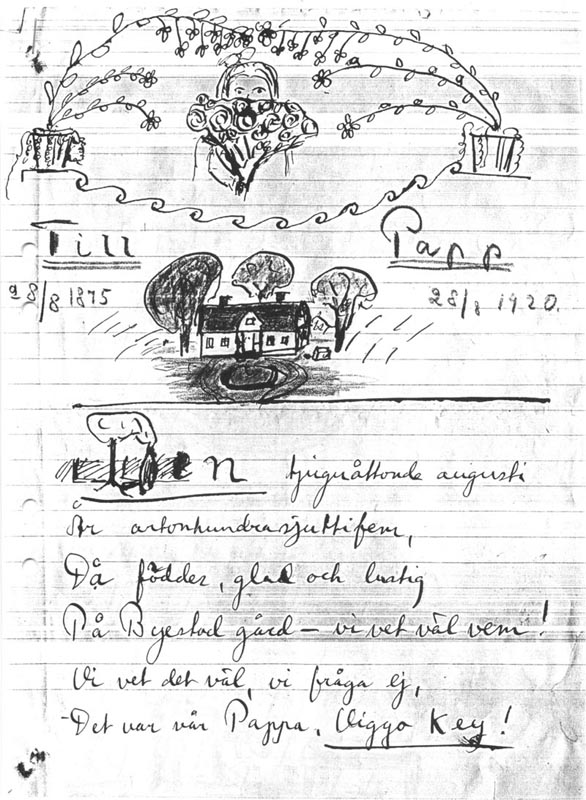 Till Papp
28/8 1875 28/8 1920.
Den tjuguåttonde augusti
År artonhundrasjuttifem,
Då föddes, glad och lustig
På Byestad gård – vi vet väl vem!
Vi vet det väl, vi fråga ej,
Det var vår Pappa, Viggo Key!